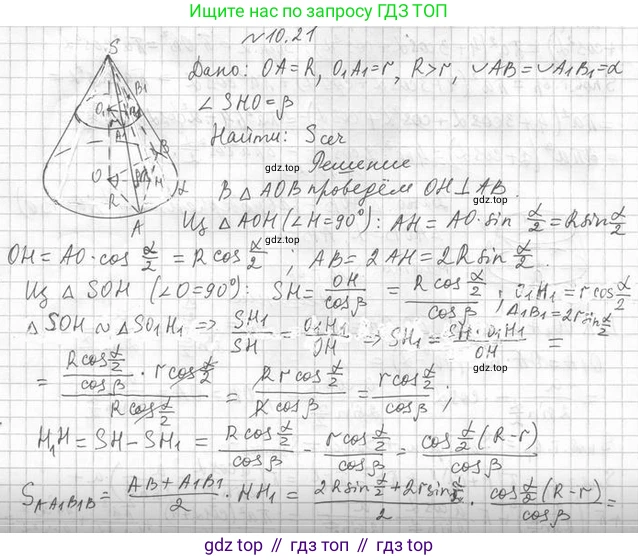 Ищите нас в поиске по фразе ГДЗ ТОП
№10.21
Дано: OA=R, O₁A₁=r, R>r, ∪AB=∪A₁B₁=α
∠SHO=β
Найти: Sсеч
Решение
В △AOB проведём OH⊥AB.
Из △AOH (∠H=90°): AH = AO·sin α/2 = R sin α/2
OH = AO·cos α/2 = R cos α/2 ; AB = 2AH = 2R sin α/2.
Из △SOH (∠O=90°): SH = OH/cos β = R cos α/2 / cos β ; O₁H₁ = r cos α/2
A₁B₁ = 2r sin α/2
△SOH ∾ △SO₁H₁ => SH₁/SH = O₁H₁/OH => SH₁ = SH·O₁H₁/OH =
= (R cos α/2 / cos β · r cos α/2) / (R cos α/2) = R r cos α/2 / R cos β = r cos α/2 / cos β ;
H₁H = SH − SH₁ = R cos α/2 / cos β − r cos α/2 / cos β = cos α/2 (R−r) / cos β
S AA₁B₁B = (AB + A₁B₁)/2 · HH₁ = (2R sin α/2 + 2r sin α/2)/2 · cos α/2 (R−r) / cos β =
gdz.top // gdz.top // gdz.top